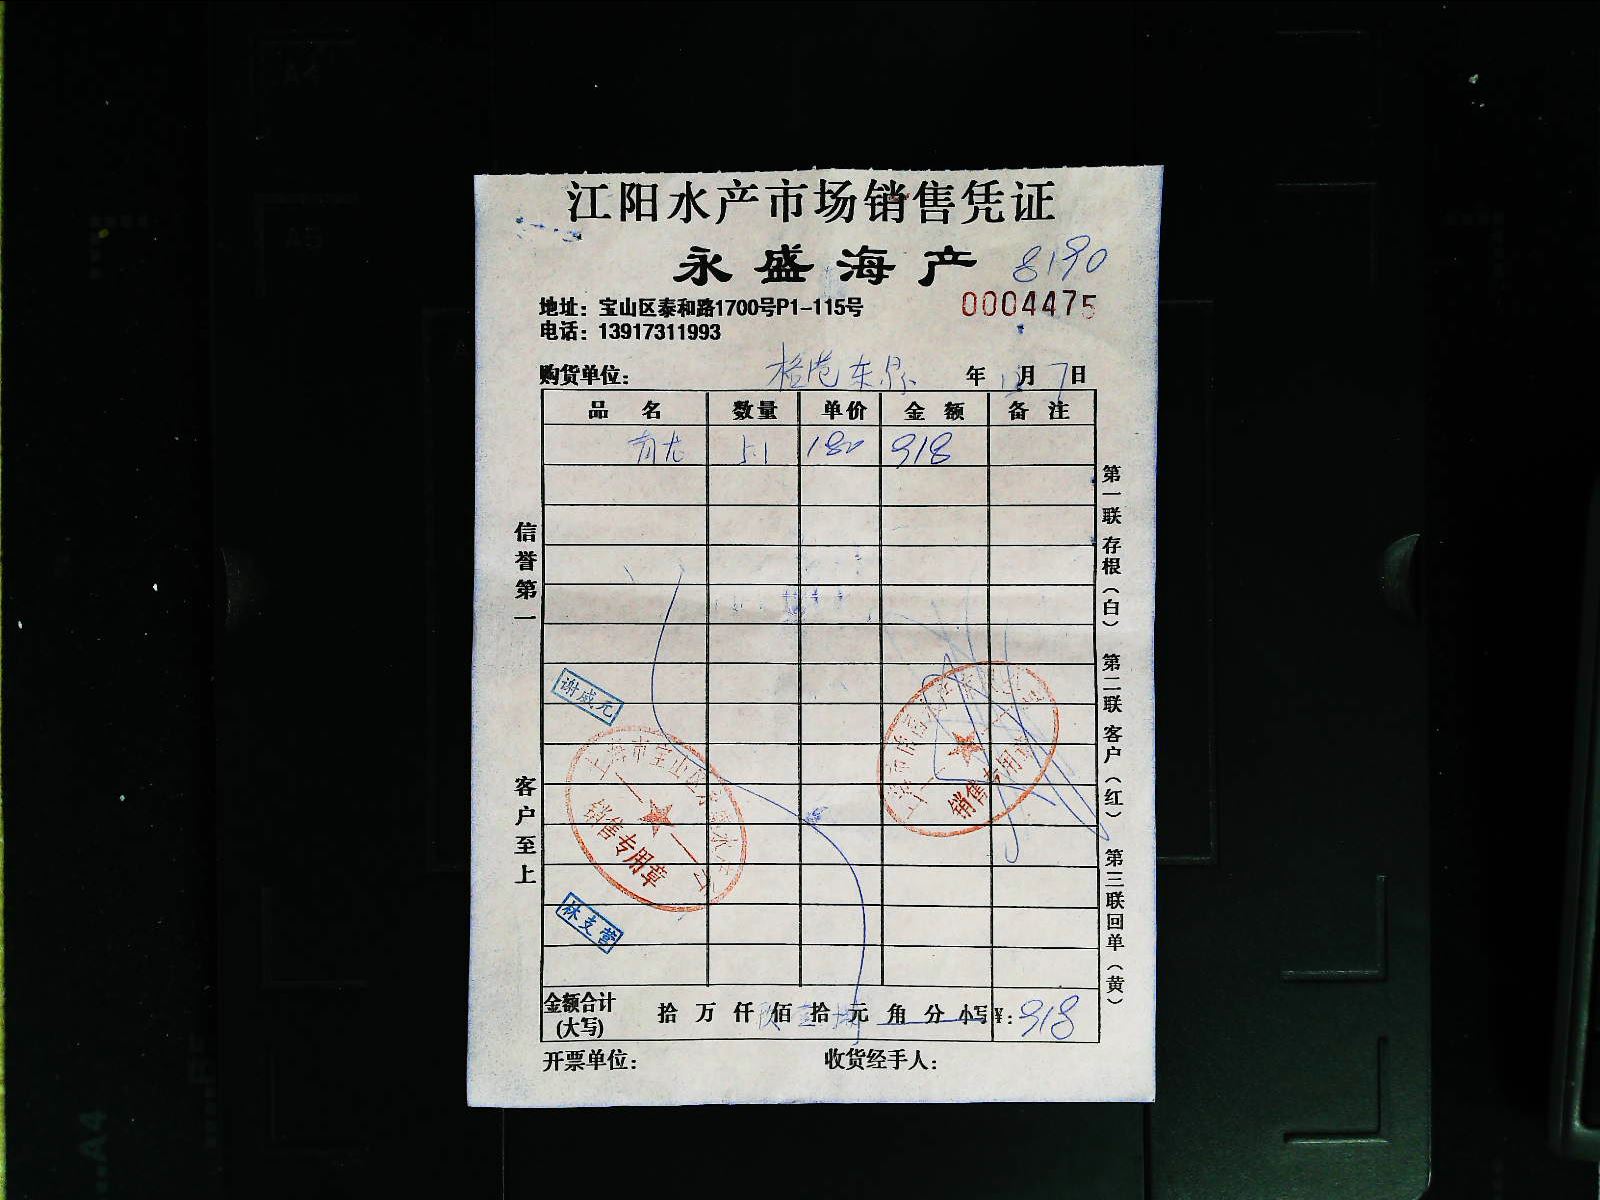 江阳水产市场销售凭证
永盛海产
8190
地址：宝山区泰和路1700号P1-115号
0004475
电话：13917311993
购货单位： 年 12月7日
品名 数量 单价 金额 备注
青龙 5.1 180 918
信誉第一
客户至上
第一联 存根（白） 第二联 客户（红） 第三联 回单（黄）
谢成元
上海市宝山区
销售专用章
销售专用章
林支营
金额合计（大写） 拾 万 仟 佰 拾 元 角 分 小写¥：918
开票单位： 收货经手人：